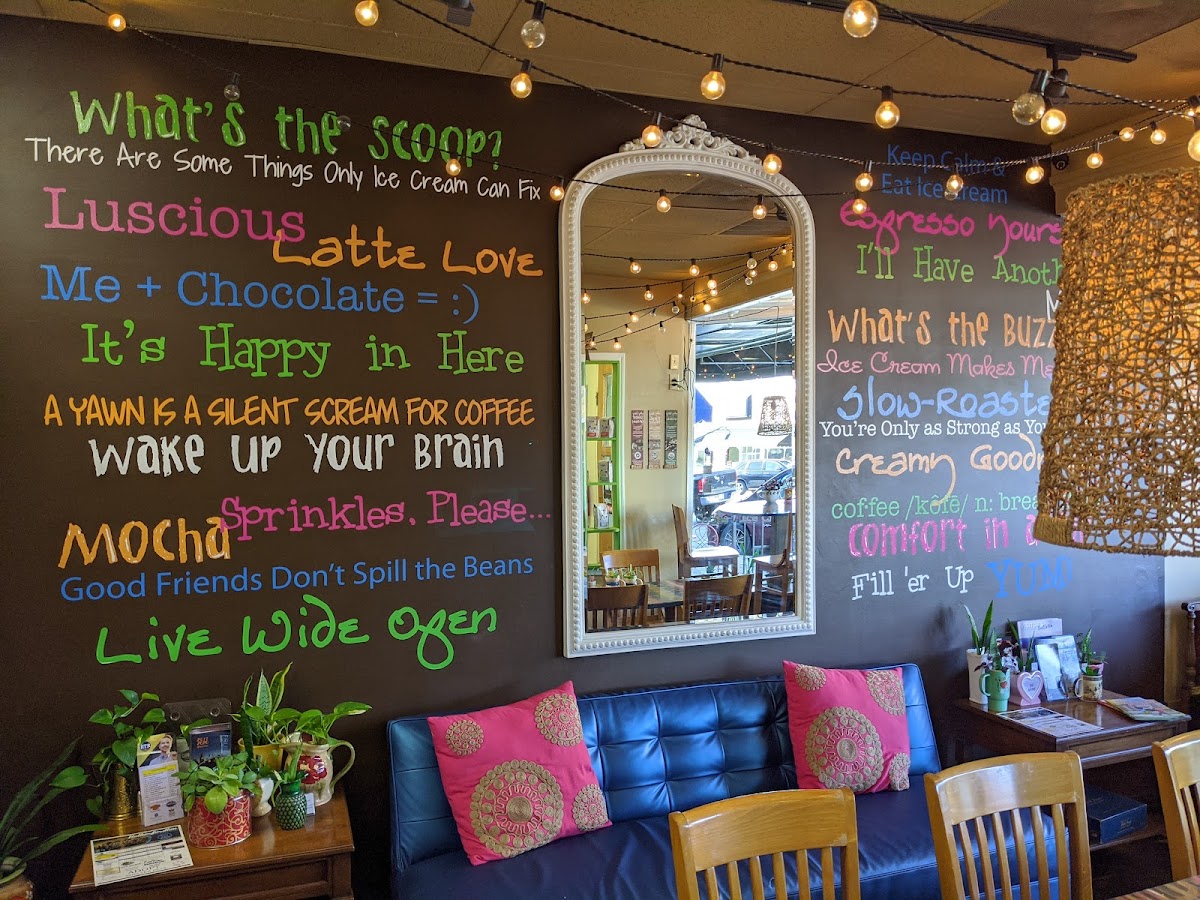 What's the Scoop?
There Are Some Things Only Ice Cream Can Fix
Luscious
Latte Love
Me + Chocolate = :)
It's Happy in Here
A YAWN IS A SILENT SCREAM FOR COFFEE
Wake up Your Brain
Sprinkles, Please...
Mocha
Good Friends Don't Spill the Beans
Live Wide Open
Keep Calm &
Eat Ice Cream
Espresso
I'll Have
What's the Buzz
Ice Cream Makes
You're Only as Strong as
Creamy
coffee /kôfē/ n:
Comfort in a
Fill 'er Up
YUM!